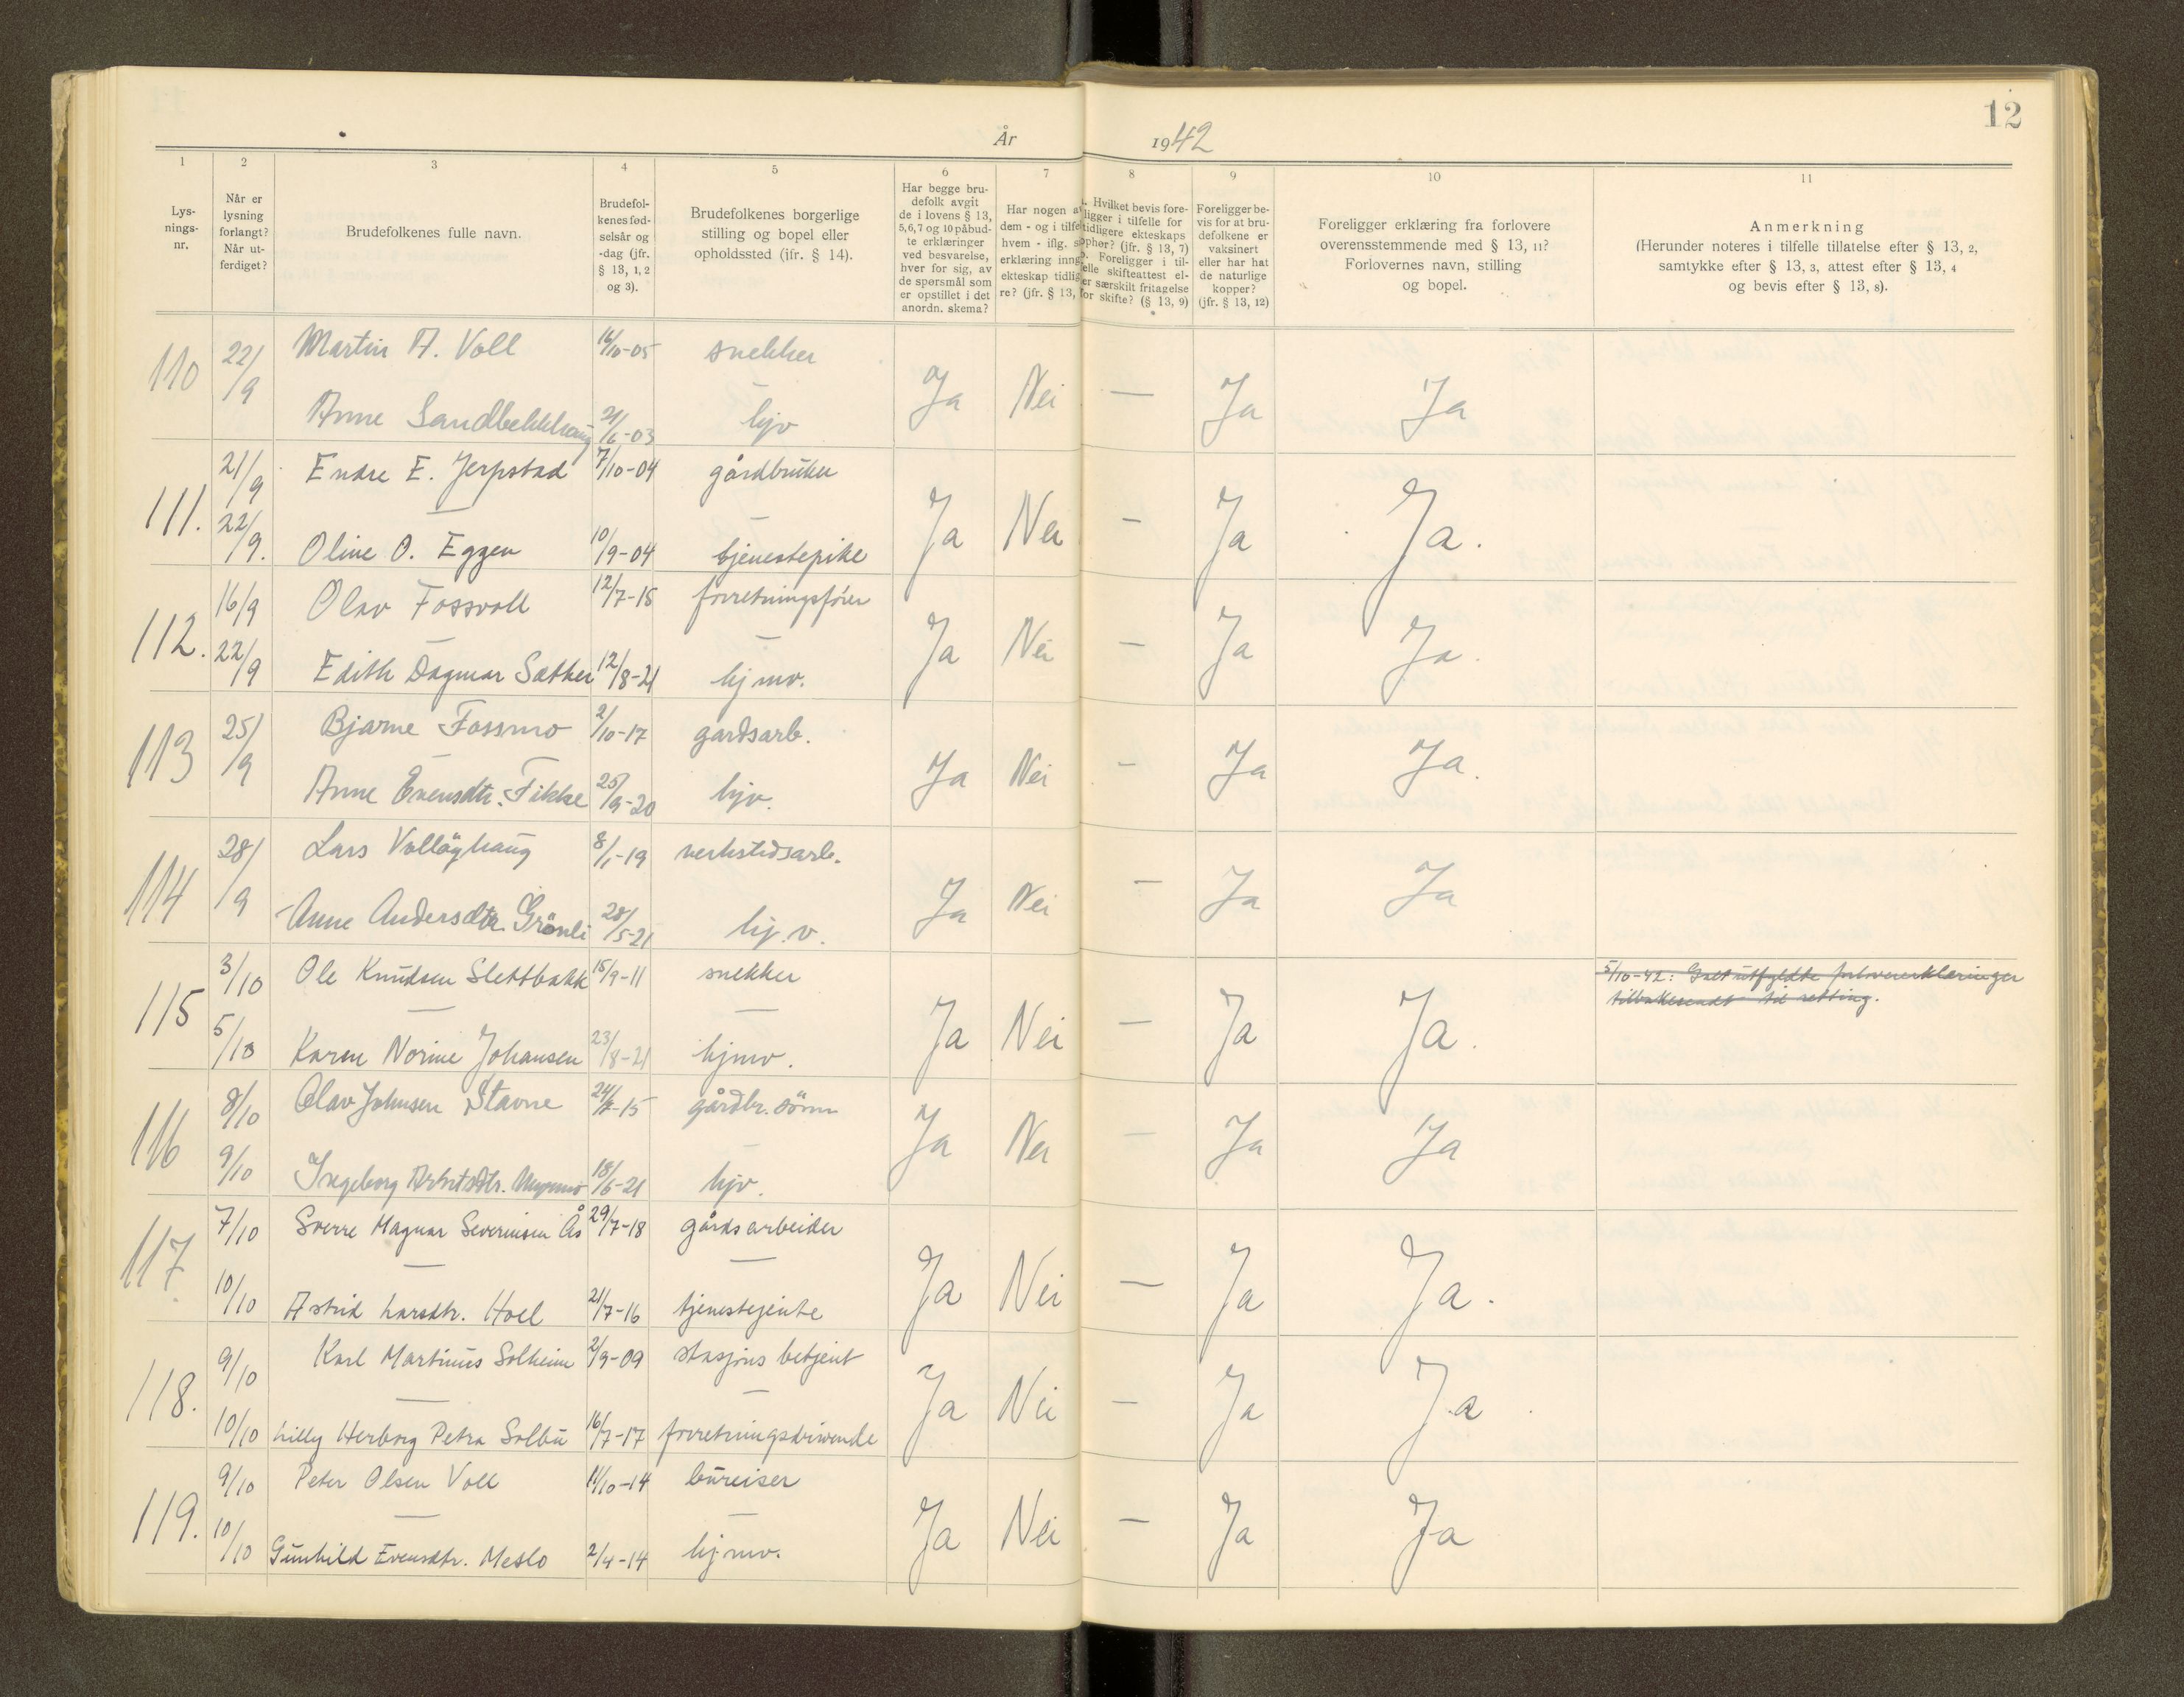 12
År 1942
1 2 3 4 5 6 7 8 9 10 11
Lys-
nings-
nr.
Når er
lysning
forlangt?
Når ut-
ferdiget?
Brudefolkenes fulle navn.
Brudefol-
kenes fød-
selsår og
-dag (jfr.
§ 13, 1, 2
og 3).
Brudefolkenes borgerlige
stilling og bopel eller
opholdssted (jfr. § 14).
Har begge bru-
defolk avgit
de i lovens § 13,
5, 6, 7 og 10 påbud-
te erklæringer
ved besvarelse,
hver for sig, av
de spørsmål som
er opstillet i det
anordn. skema?
Har nogen a
dem - og i tilfe
hvem - iflg. s
erklæring inng
ekteskap tidlig
re? (jfr. § 13,
. Hvilket bevis fore-
ligger i tilfelle for
tidligere ekteskaps
ophør? (jfr. § 13, 7)
b. Foreligger i til-
elle skifteattest el-
er særskilt fritagelse
for skifte? (§ 13, 9)
Foreligger be-
vis for at bru-
defolkene er
vaksinert
eller har hat
de naturlige
kopper?
(jfr. § 13, 12)
Foreligger erklæring fra forlovere
overensstemmende med § 13, 11?
Forlovernes navn, stilling
og bopel.
Anmerkning
(Herunder noteres i tilfelle tillatelse efter § 13, 2,
samtykke efter § 13, 3, attest efter § 13, 4
og bevis efter § 13, 8).
110 22/9 Martin A. Voll 16/10-05 snekker Ja Nei — Ja Ja
Anne Sandbekkhaug 21/6-03 hjv
111. 21/9 Endre E. Jerpstad 7/10-04 gårdbruker Ja Nei — Ja Ja.
22/9. Oline O. Eggen 10/9-04 tjenestepike
112. 16/9 Olav Fossvoll 12/7-18 forretningsfører Ja Nei — Ja Ja.
22/9 Edith Dagmar Sæther 12/8-21 hjmv.
113 25/9 Bjarne Fossmo 2/10-17 gardsarb. Ja Nei — Ja Ja.
Anne Evensdtr. Fikke 25/9-20 hjv.
114 28/9 Lars Volløyhaug 8/1-19 verkstedsarb. Ja Nei — Ja Ja
Anne Andersdtr. Grönli 28/5-21 hj.v.
115 3/10 Ole Knudsen Slettbakk 15/9-11 snekker Ja Nei — Ja Ja. 5/10-42: Galt utfyldte forlovererklæringer
tilbakesendt til retting.
5/10 Karen Norine Johansen 23/8-21 hjmv.
116 8/10 Olav Johnsen Stavne -15 gårdbr. sönn Ja Nei — Ja Ja
9/10 Ingeborg 18/6-21 hjv.
117. 7/10 Sverre Magnar Severinsen Ås 29/7-18 gårdsarbeider Ja Nei — Ja Ja.
10/10 Astrid Larsdtr. Hoel 21/7-16 tjenestejente
118. 9/10 Karl Martinus Solheim 2/9-09 stasjons betjent Ja Nei — Ja Ja.
10/10 Lilly Herborg Petra Solbu 16/7-17 forretningsdrivende
119. 9/10 Peter Olsen Voll 11/10-14 bureiser Ja Nei — Ja Ja
10/10 Gunhild Evensdtr. Meslo 2/4-14 hjmv.